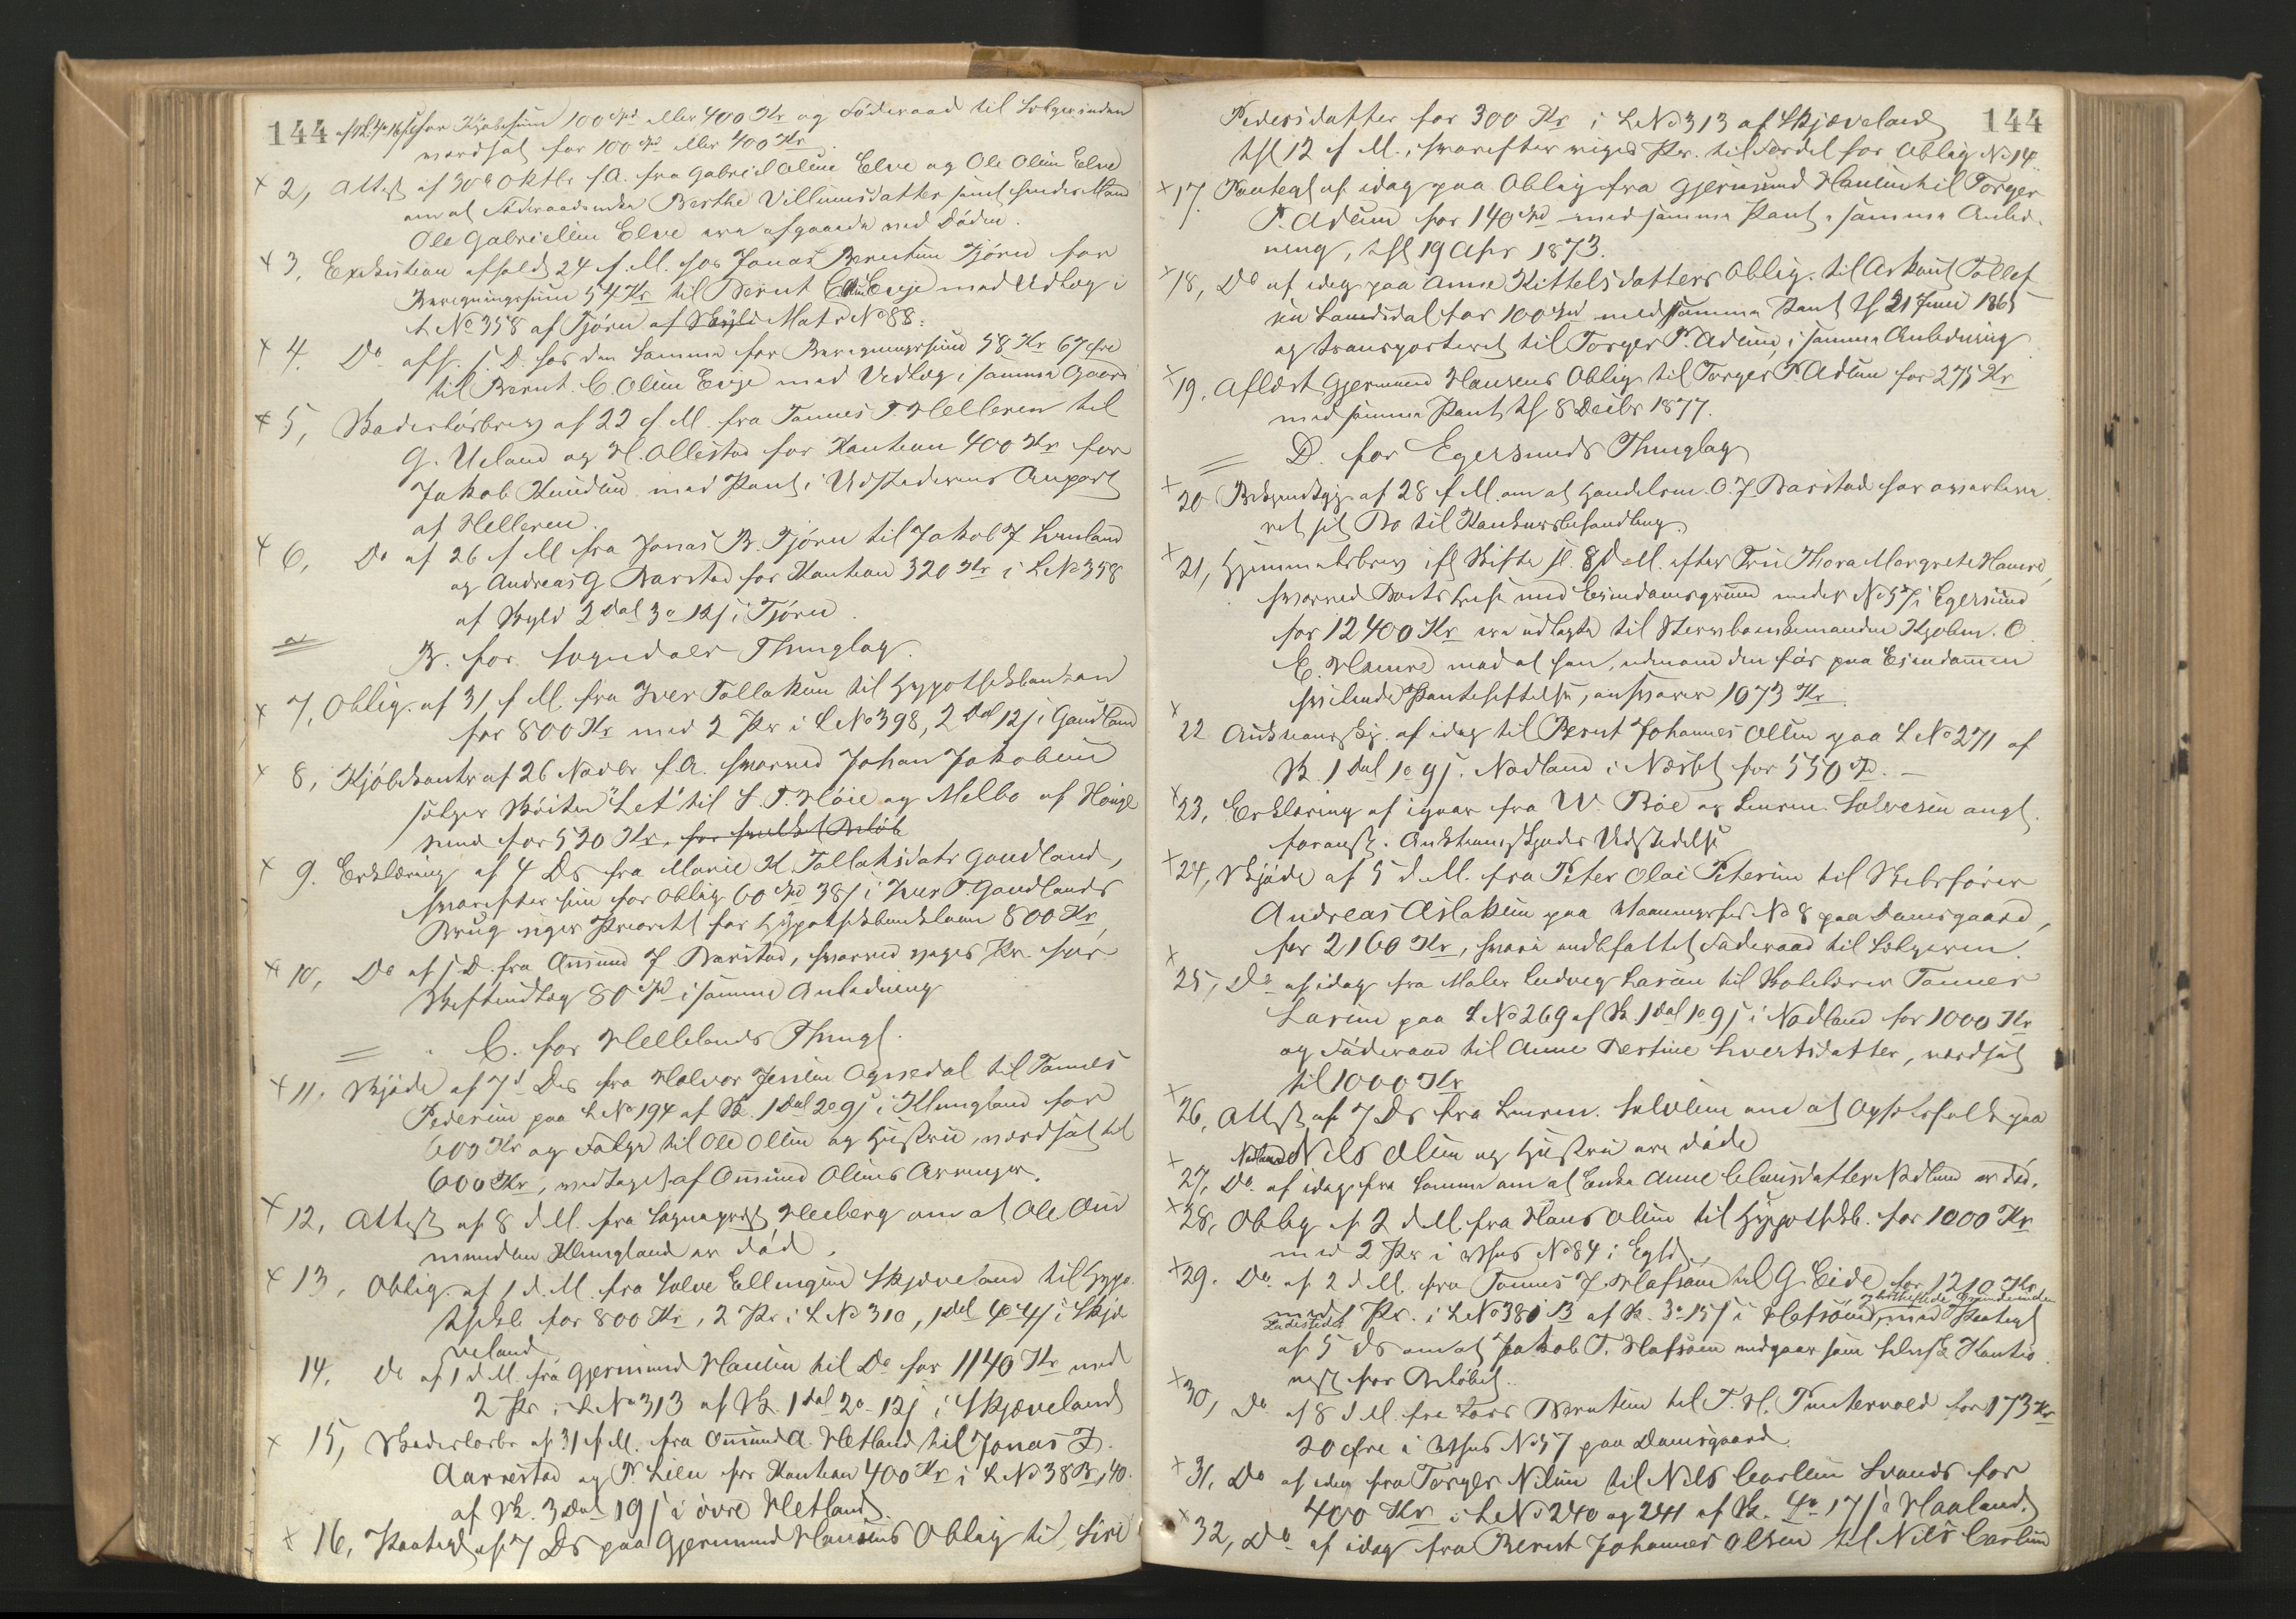 144 af Sk. 4 o 16 s for Kjøbesum 100 Spd eller 400 Kr og Føderaad til Sælgerinden
værdsat for 100 Spd eller 400 Kr.
× 2, Attest af 30te Oktbr f.A. fra Gabriel Olsen Elve og Ole Olsen Elve
om at Føderaadsenken Berthe Villumsdatter samt hendes Mand
Ole Gabrielsen Elve ere afgaaede ved Døden.
× 3, Exekution afholdt 24 f. M. hos Jonas Berntsen Tjørn for
Beregningssum 54 Kr til Bernt C. Olsen Eeje med Udlæg i
L No 358 af Tjørn af Skyld Matr No 88.
× 4. Do afh. s. D. hos den Samme for Beregningssum 58 Kr 67 Øre
til Bernt C. Olsen Eeje med Udlæg i samme Gaard
× 5, Skadesløsbrev af 22 f M. fra Tønnes T. Helleren til
G. Ueland og H. Ollestad for Kaution 400 Kr for
Jakob Knudsen med Pant i Udstederens Anpart
af Helleren.
× 6, Do af 26 f M fra Jonas B. Tjørn til Jakob J
og Andreas G Barstad for Kaution 320 Kr i L No 358
af Skyld 2 Dal 3 o 12 s i Tjørn.
B. for Sogndals Thinglag.
× 7, Oblig. af 31 f M. fra Iver Tollaksen til Hypothekbanken
for 800 Kr med 2 Pr i L No 398, 2 Dal 12 s i Gaudland
× 8, Kjøbekontr af 26 Novbr f. A. hvorved Johan Jakobsen
sælger Skøiten "Let" til S. T. Høie og Melbo af
sund for 530 Kr, for hvilket Beløb
× 9. Erklæring af 4 Ds fra Marie H. Tollaksdatr Gaudland,
hvorefter hun for Oblig 60 Spd 38 s i Iver T. Gaudlands
Brug viger Prioritet for Hypothekbanklaan 800 Kr,
× 10, Do af s D. fra Omund J. Barstad, hvorved viges Pr. for
Skifteudlæg 80 Spd i samme Anledning
C. for Hellelands Thingl.
× 11, Skjøde af 7d Ds fra Halvor Jensen Ognedal til Tønnes
Pedersen paa L No 194 af Sk. 1 Dal 2 o 9 s i Klungland for
600 Kr og Følge til Ole Olsen og Hustru, værdsat til
600 Kr, vedtaget af Omund Olsens Arvinger.
× 12, Attest af 8 d M. fra Sogneprest Heiberg om at Ole Om
mundsen Klungland er død.
× 13, Oblig. af 1 d. M. fra Salve Ellingsen Skjæveland til Hypo
thekb for 800 Kr, 2 Pr i L No 310, 1 Dal 4 o 4 s i Skjæ
veland
14. Do af 1 d M. fra Gjermund Hansen til Do for 1140 Kr med
2 Pr i L No 313 af Sk. 1 Dal 2 o 12 s i Skjæveland
× 15, Skadesløsbr af 31 f M. fra Omund A. Hetland til Jonas T.
Aarrestad og P. Lien for Kaution 400 Kr i L No 38 B, 40.
af Sk. 3 Dal 19 s i øvre Hetland
× 16, Paategn af 7 Ds paa Gjermund Hansens Oblig til Siri
Pedersdatter for 300 Kr i L No 313 af Skjæveland 144
thl 12 f M., hvorefter viges Pr. til Fordel for Oblig No 14.
× 17. Paategn af idag paa Oblig fra Gjermund Hansen til Torger
P. Adsen for 140 Spd med samme Pant i samme Anled-
ning, thl 19 Apr 1873.
× 18, Do af idag paa Anne Kittelsdatters Oblig. til Tollef
sen Lomsdal for 100 Spd med samme Pant thl 21 Juni 1865
og transporteret til Torger P. Adsen, i samme Anledning
× 19, Aflæst Gjermund Hansens Oblig til Torger P. Adsen for 275 Kr
med samme Pant thl 8 Decbr 1877.
D. for Egersunds Thinglag
× 20 Bekjendtgj. af 28 f M. om at Handelsm. O. J. Barstad har overleve
ret sit Bo til Konkursbehandling
× 21, Hjemmelsbrev ifl Skifte sl. 8 d M. efter Fru Thora Margrete Hamre,
hvorved Boets Huse med Eiendomsgrund under No 57 i Egersund
for 12400 Kr ere udlagte til Stervboenkemanden Kjøbm. O.
E. Hamre mod at han, udenom den før paa Eiendommen
hvilende Pantehæftelse, ansvarer 1073 Kr.
× 22 Auktionsskj. af idag til Bernt Johannes Olsen paa L No 271 af
Sk. 1 Dal 1 o 9 s. Nodland i Næsbt for 550 Spd. —
× 23, Erklæring af igaar fra W. Bøe og Lensm. Salvesen angl.
foranst. Auktionsskjødes Udstedelse
× 24, Skjøde af 5 d. M. fra Peter Olai Petersen til Skibsfører
Andreas Aslaksen paa Vaaningshus No 8 paa Damsgaard,
for 2160 Kr, hvori indbefattet Føderaad til Sælgeren.
× 25, Do af idag fra Maler Ludvig Larsen til Tønnes
Larsen paa L No 269 af Sk. 1 Dal 1 o 9 s i Nodland for 1000 Kr
og Føderaad til Anne Bertine Sivertsdatter, værdsat
til 1000 Kr
× 26, Attest af 7 Ds fra Lensm. Salvesen om at Opsidderfolk paa
Nodland Nils Olsen og Hustru ere døde
× 27, Do af idag fra Samme om at Enke Anne Clausdatter Nodland er død.
× 28, Oblig af 2 d M. fra Hans Olsen til Hypothekb. for 1000 Kr
med 2 Pr i Vhus No 84 i Egsd.
× 29. Do af 2 d M. fra Tønnes J. Hafsøen til G. Eide for 1210 Kr
med 1 Pr. i L No 381 B af Sk. 3 o 15 s i Hafsøen, med Paategn
af 5 Ds om at Jakob T. Hafsøen indgaar som Selvsk. Kautio
nist for Beløbet.
× 30, Do af 8 d M. fra Lars Berntsen til P. H. Puntervold for 173 Kr
20 Øre i Vhus No 57 paa Damsgaard.
× 31, Do af idag fra Torger Nilsen til Nils Carlsen Svands for
400 Kr i L No 240 og 241 af Sk. 4 o 17 s i Haaland.
× 32, Do af idag fra Bernt Johannes Olsen til Nils Carlsen